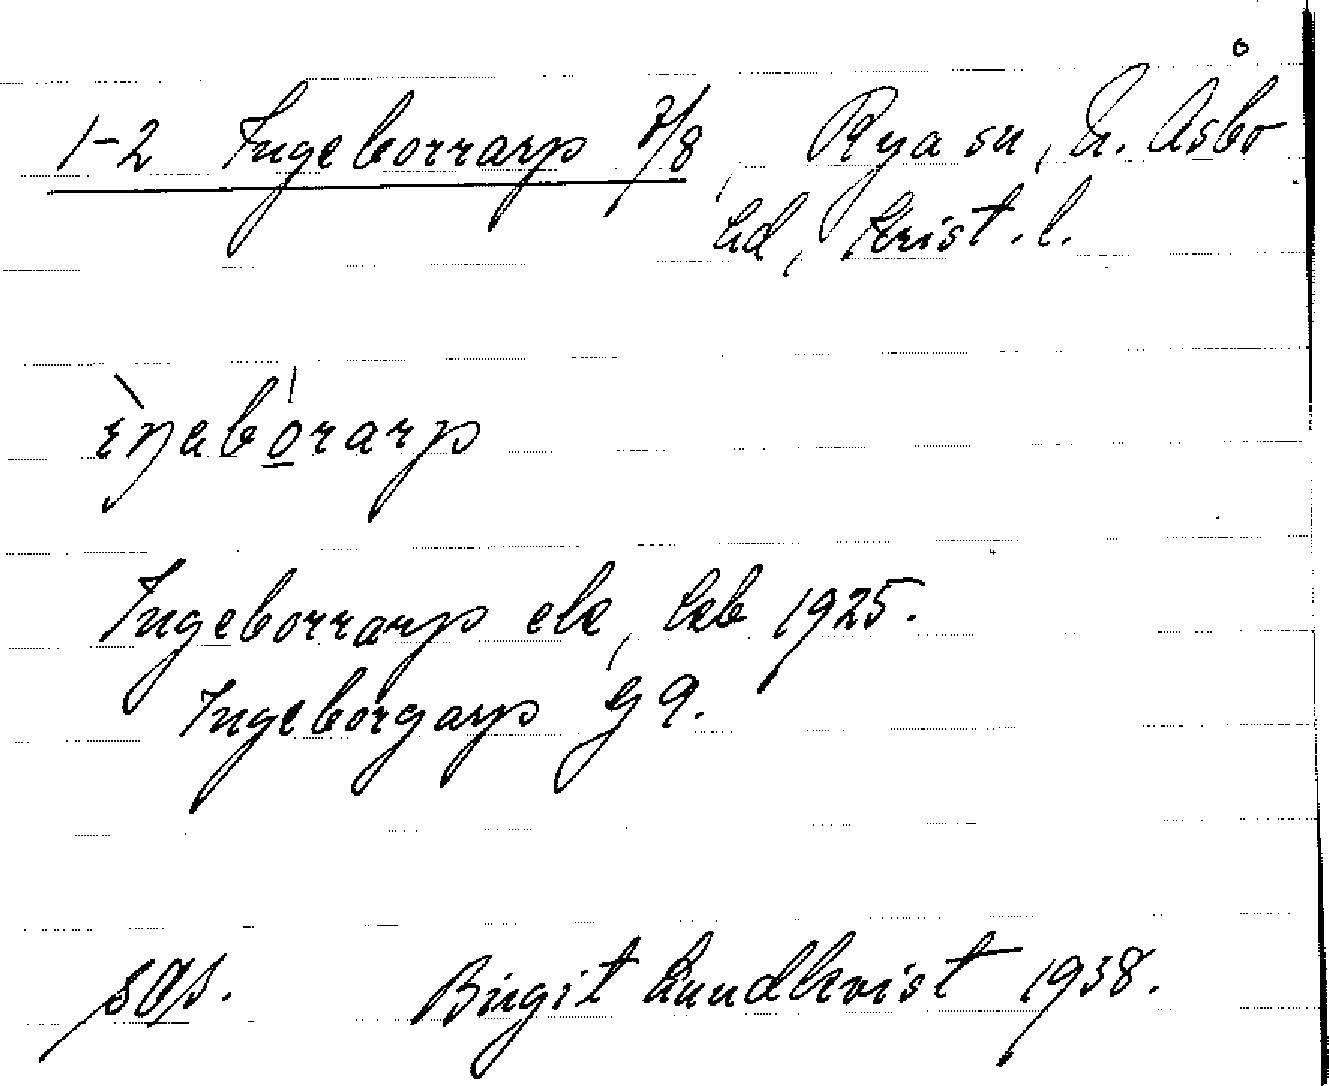 1-2 Ingeborrarp 7/8, Rya sn, N. Åsbo
hd, Krist. l.
èŋabórarp
Ingeborrarp ek, kab 1925.
Ingeborgarp G 9.
Birgit Lundkvist 1938.